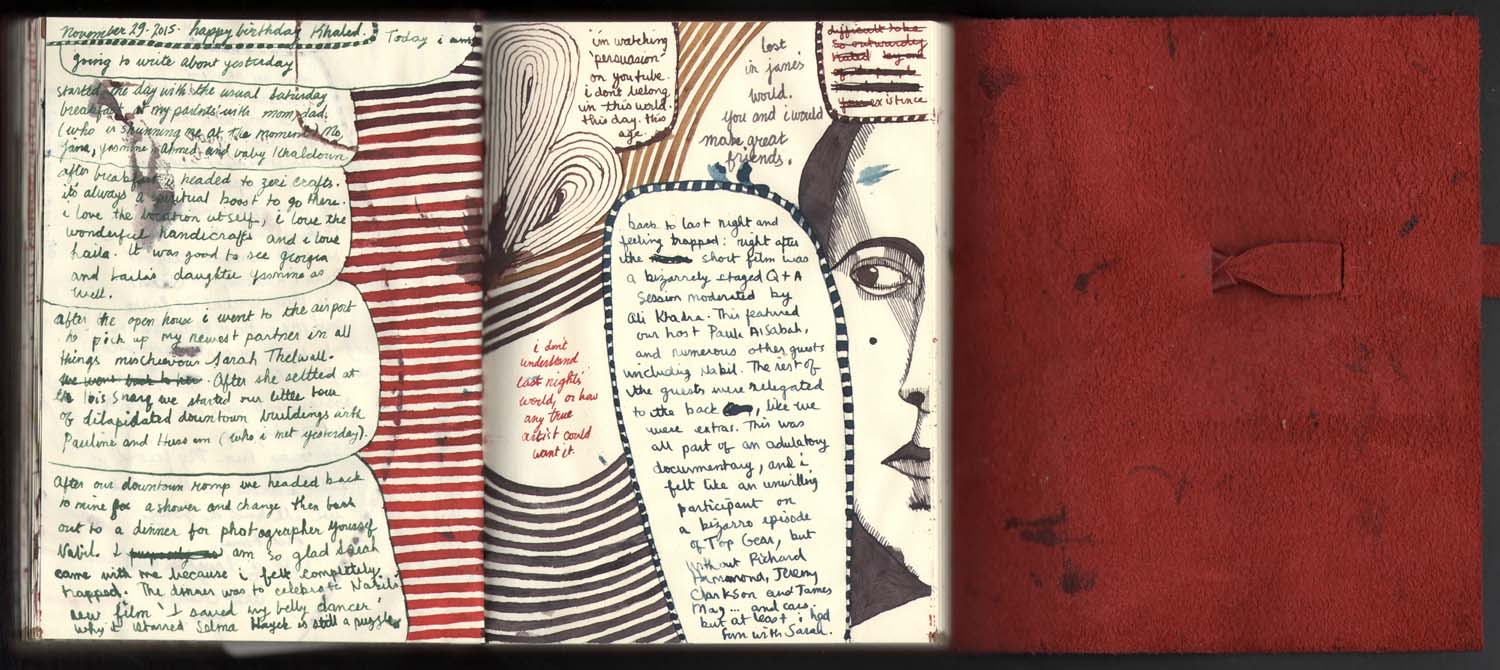 November 29. 2015. happy birthday Khaled.
Today i am
going to write about yesterday
started the day with the usual Saturday
breakfast at my parents with mom, dad.
(who is shunning me at the moment) Mo,
Jana, yasmine, Ahmed and baby Khaldoun
after breakfast i headed to zeri crafts.
it's always a spiritual boost to go there.
i love the location itself, i love the
wonderful handicrafts and i love
Laila. It was good to see Georgia
and Laila's daughter Yasmine as
well.
After the open house i went to the airport
to pick up my newest partner in all
things mischievous Sarah Thelwall.
she went back to her. After she settled at
we started our little tour
of dilapidated downtown buildings with
Pauline and Hussam (who i met yesterday).
After our downtown romp we headed back
to mine for a shower and change then back
out to a dinner for photographer Youssef
Nabil. I am so glad Sarah
came with me because i felt completely
trapped. The dinner was to celebrate Nabil's
new film 'I saved my belly dancer'
why it starred Selma Hayek is still a puzzle
i'm watching
'persuasion'
on youtube.
i don't belong
in this world.
this day. this
age.
lost
in jane's
world.
you and i would
make great
friends.
difficult to be
so outwardly
hated beyond
of the people
your existence
i don't
understand
last nights'
world, or how
any true
artist could
want it.
back to last night and
feeling trapped: right after
the short film was
a bizarrely staged Q+A
session moderated by
Ali Khadra. This featured
our host Paula AlSabah,
and numerous other guests
including Nabil. The rest of
the guests were relegated
to the back, like we
were extras. This was
all part of an adulatory
documentary, and i
felt like an unwilling
participant on
a bizarro episode
of Top Gear, but
without Richard
Hammond, Jeremy
Clarkson and James
May... and cars.
but at least i had
fun with Sarah.